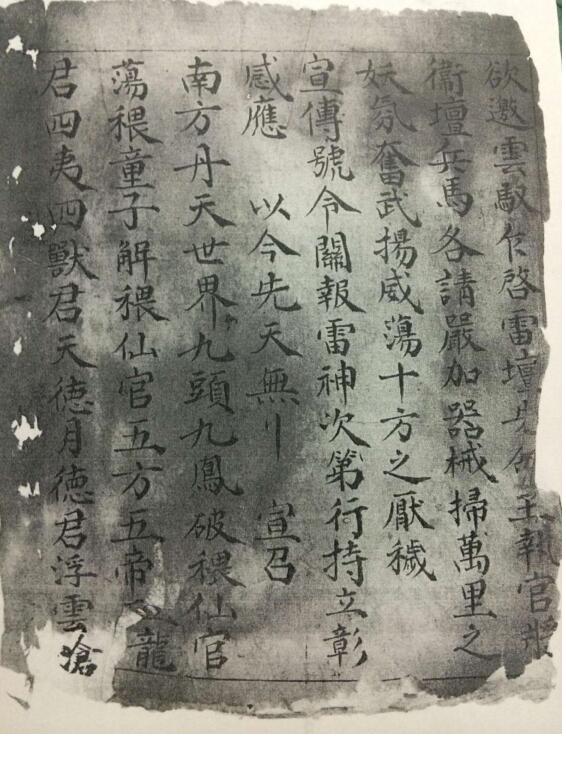 欲邀雲馭仰啓雷壇執官將
衞壇兵馬各請嚴加器械掃萬里之
妖氛奮武揚威蕩十方之厭穢
宣傳號令關報雷神次第行持立彰
感應　以今先天無　宣召
南方丹天世界九頭九鳳破穢仙官
蕩穢童子解穢仙官五方五帝龍
君四夷四獸君天德月德君浮雲滄